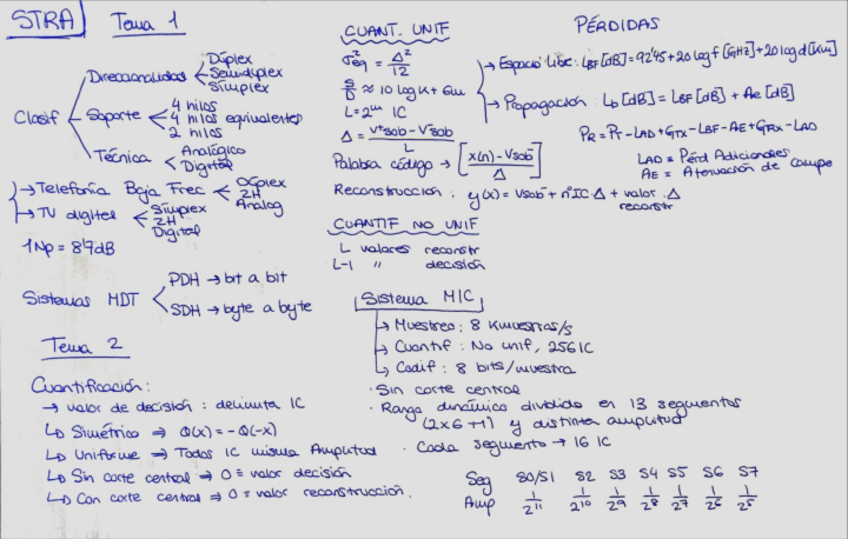 STRA Tema 1
Clasif
Direccionalidad
Dúplex
Semidúplex
Símplex
Soporte
4 hilos
4 hilos equivalentes
2 hilos
Técnica
Analógico
Digital
→ Telefonía Baja Frec
Dúplex
2H
Analog
→ TV digital
Símplex
2H
Digital
1Np = 8'7dB
Sistemas MDT
PDH → bit a bit
SDH → byte a byte
Tema 2
Cuantificación:
→ valor de decisión : delimita IC
↳ Simétrico ⇒ Q(x) = -Q(-x)
↳ Uniforme ⇒ Todos IC misma Amplitud
↳ Sin corte central ⇒ 0 ≡ valor decisión
↳ Con corte central ⇒ 0 ≡ valor reconstrucción.
CUANT. UNIF
σ²eq = Δ²/12
S/D ≈ 10 log K + 6m
L = 2^m IC
Δ = (V⁺sob - V⁻sob)/L
Palabra código → [(x(n) - Vsob⁻)/Δ]
Reconstrucción : y(x) = Vsob⁻ + nºIC·Δ + valor reconstr · Δ
CUANTIF NO UNIF
L valores reconstr
L-1 " decisión
Sistema MIC
→ Muestreo : 8 Kmuestras/s
→ Cuantif : No unif, 256 IC
↳ Codif : 8 bits/muestra
· Sin corte central
· Rango dinámico dividido en 13 segmentos
(2x6+1) y distinta amplitud
· Cada segmento → 16 IC
Seg S0/S1 S2 S3 S4 S5 S6 S7
Amp 1/2¹¹ 1/2¹⁰ 1/2⁹ 1/2⁸ 1/2⁷ 1/2⁶ 1/2⁵
PÉRDIDAS
→ Espacio Libre : LBF [dB] = 92'45 + 20 log f [GHz] + 20 log d [Km]
→ Propagación : Lb [dB] = LBF [dB] + Ae [dB]
PR = PT - LAD + GTX - LBF - AE + GRX - LAD
LAD = Pérd Adicionales
AE = Atenuación de campo